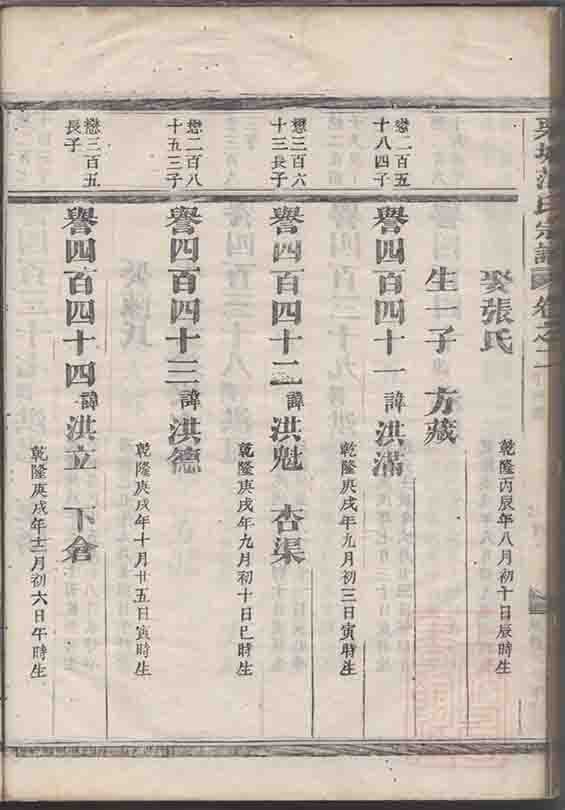 范氏宗譜 卷之二
娶張氏
乾隆丙辰年八月初十日辰時生
生一子 方藏
懋二百五十八四子
譽四百四十一 諱洪滿
乾隆庚戌年九月初三日寅時生
懋三百六十三長子
譽四百四十二 諱洪魁 杏渠
乾隆庚戌年九月初十日巳時生
懋二百八十五三子
譽四百四十三 諱洪德
乾隆庚戌年十月廿五日寅時生
懋三百五長子
譽四百四十四 諱洪立 下倉
乾隆庚戌年十二月初六日午時生